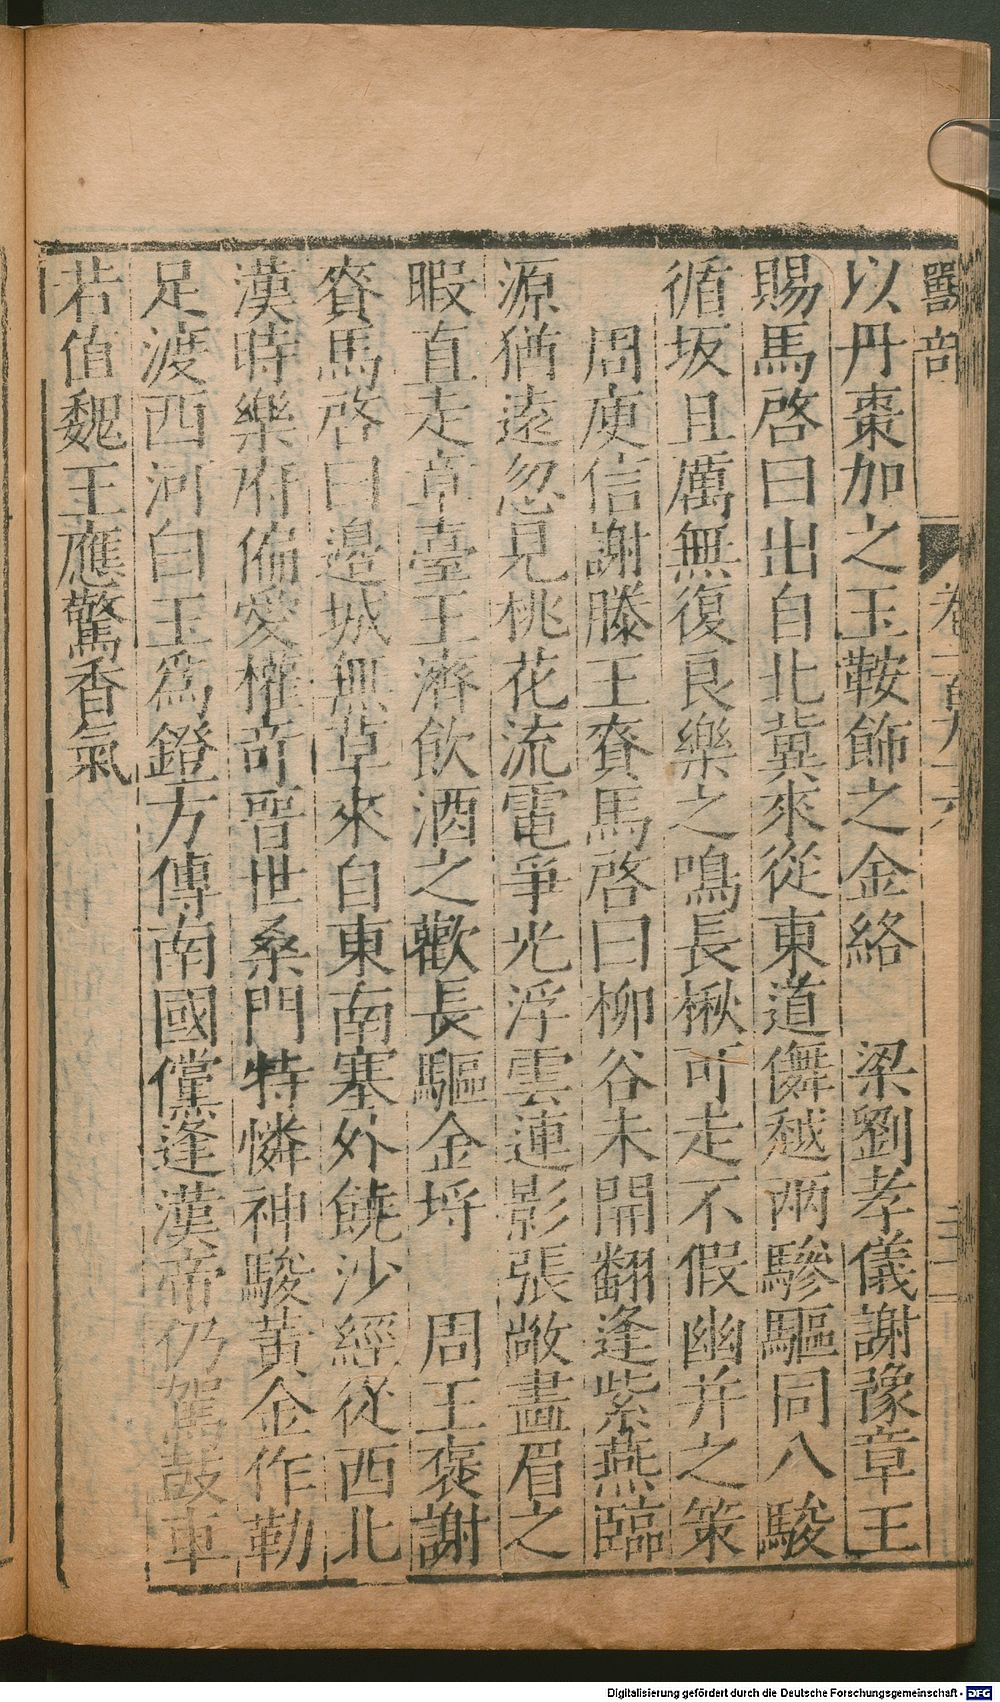 獸部 卷一百九十六
以丹棗加之玉鞍飾之金絡 梁劉孝儀謝豫章王
賜馬啓曰出自北冀來從東道儛越兩驂驅同八駿
循坂且厲無復良樂之鳴長楸可走不假幽并之策
周庾信謝滕王賚馬啓曰柳谷未開翻逢紫燕臨
源猶遠忽見桃花流電爭光浮雲連影張敞畫眉之
暇直走章臺王濟飲酒之歡長驅金埒 周王褒謝
賚馬啓曰邊城無草來自東南塞外饒沙經從西北
漢時樂府偏愛權奇晉世桑門特憐神駿黃金作勒
足渡西河白玉爲鐙方傳南國儻逢漢帝仍駕鼓車
若值魏王應驚香氣
Digitalisierung gefördert durch die Deutsche Forschungsgemeinschaft - DFG